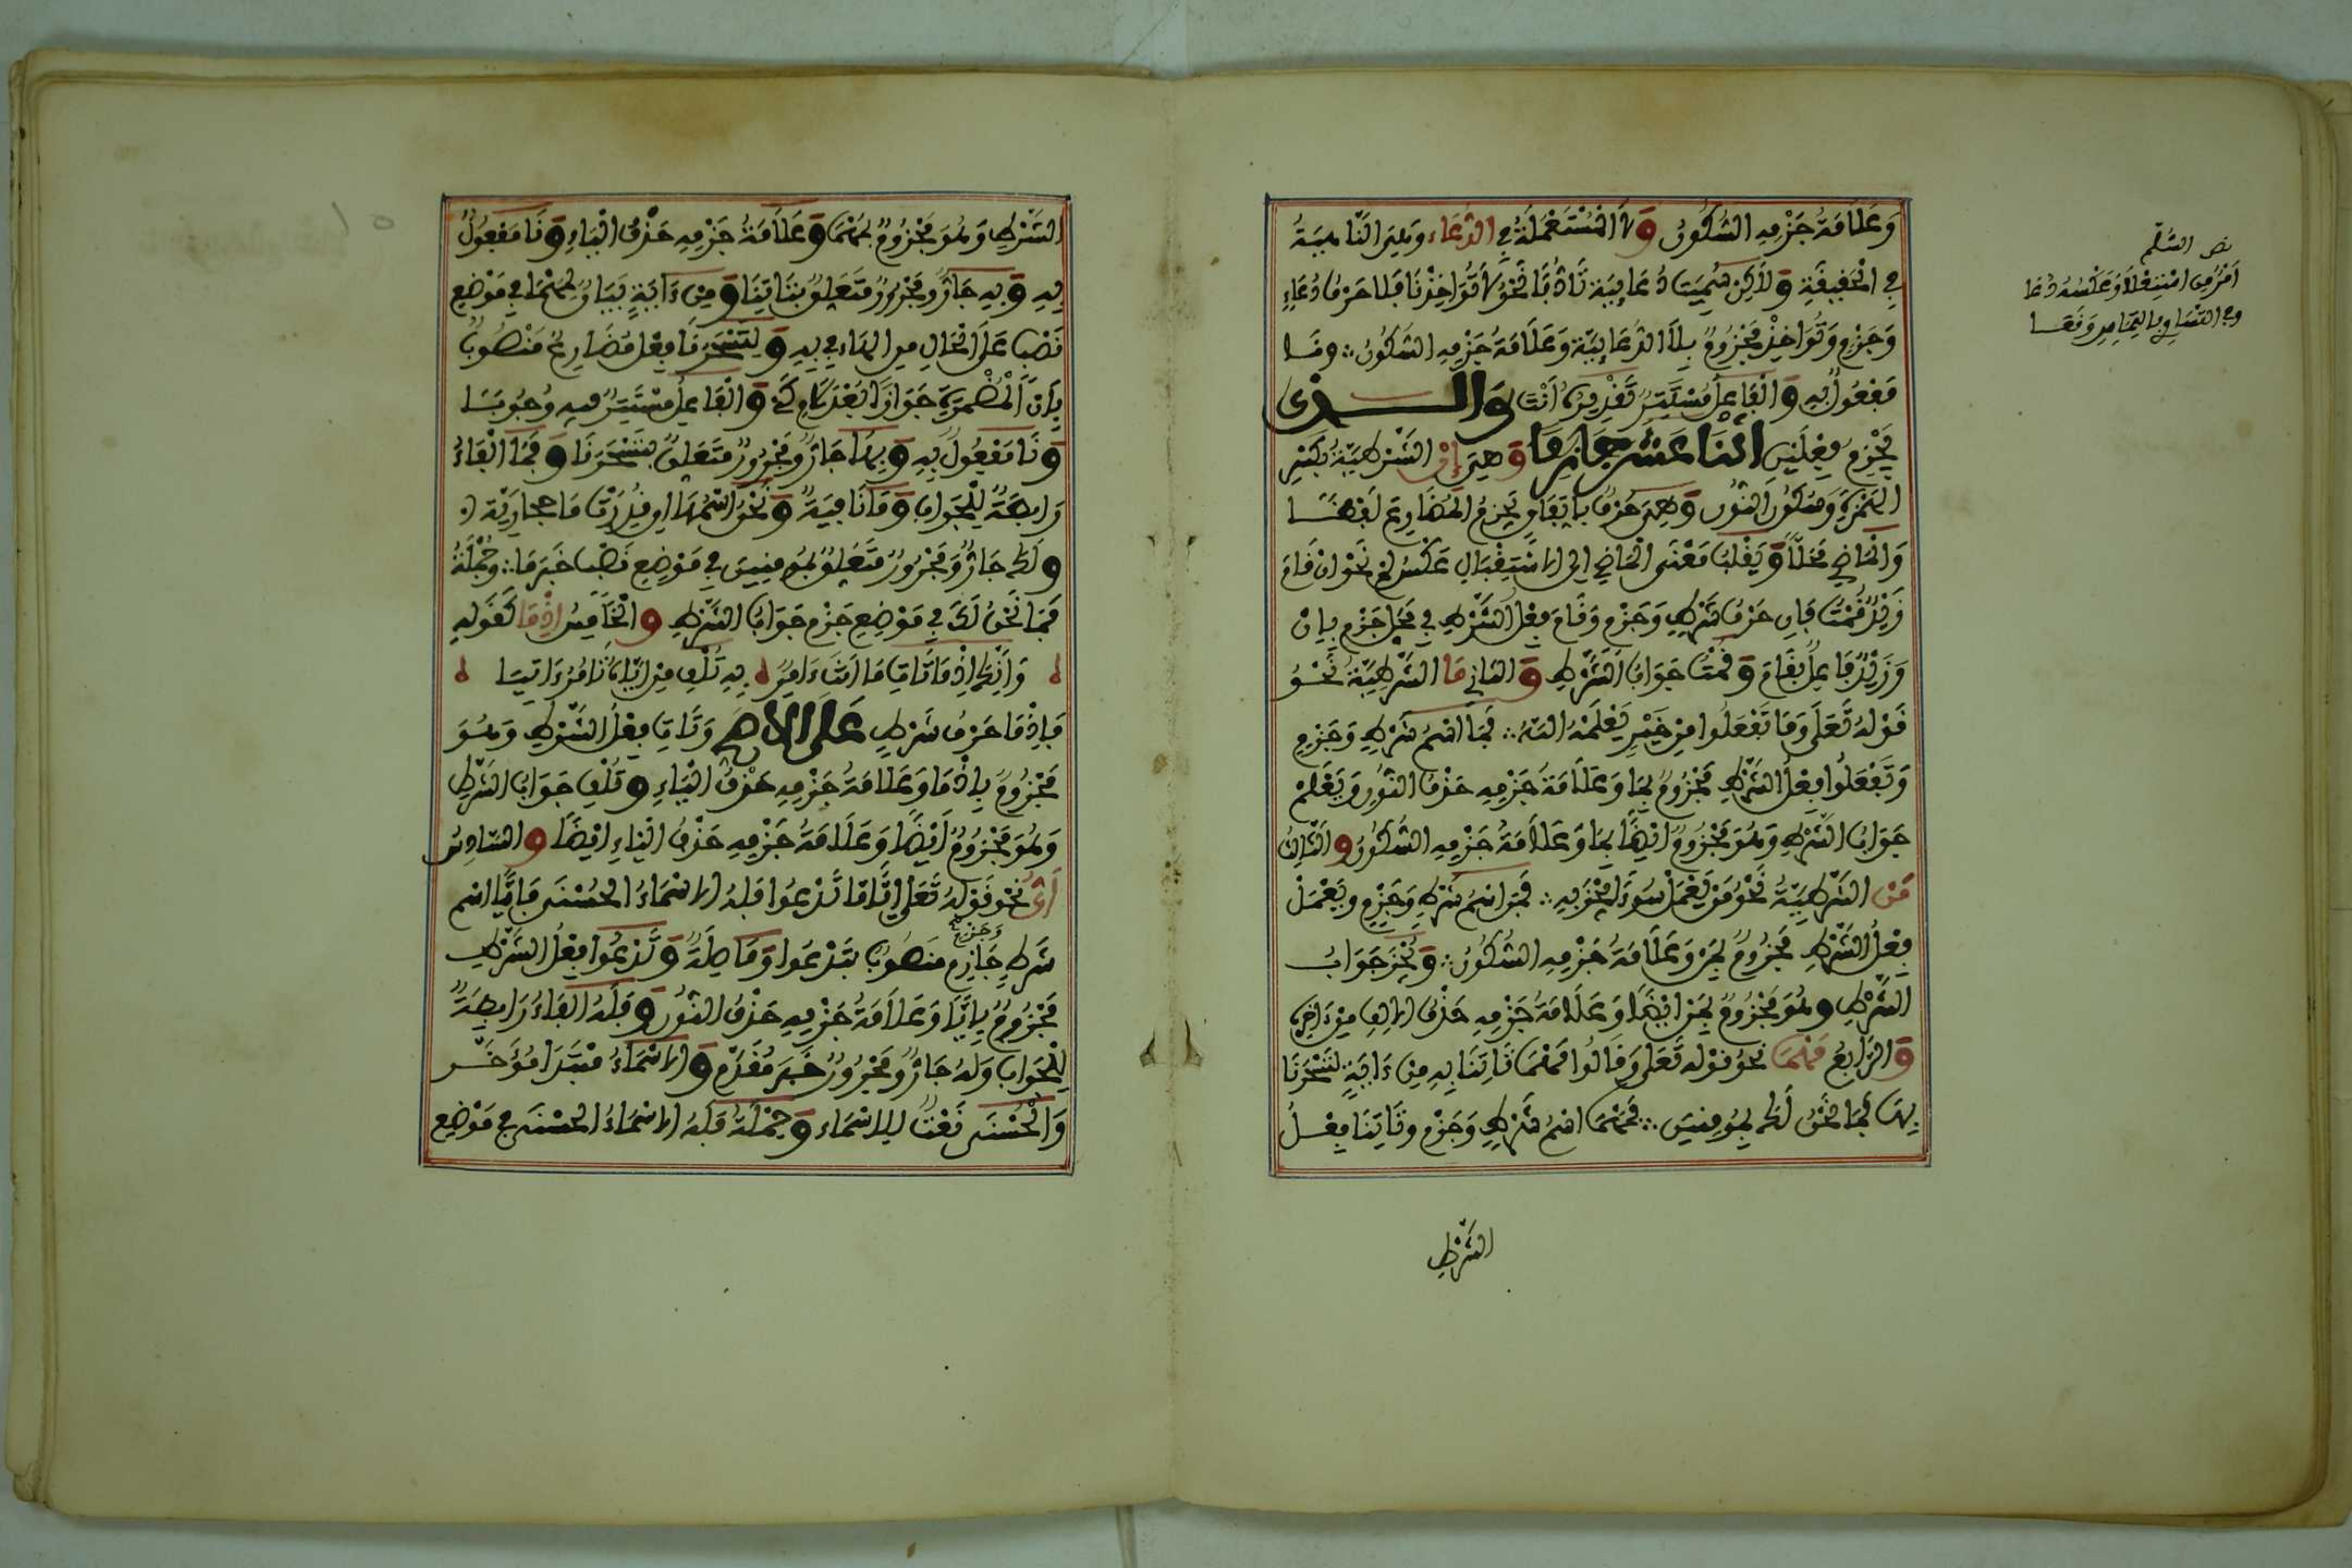 وَعَلَامَةُ جَزْمِهِ السُّكُونُ وَلَا الْمُسْتَعْمَلَةُ فِي الدُّعَاء وَهِيَ النَّاهِيَةُ
فِي الْحَقِيقَةِ وَلَاكِنْ سُمِّيَتْ دُعَائِيَّة تَأَدُّبًا نَحْوُ لَا تُوَاخِذْنَا فَلَا حَرْفُ دُعَاءٍ
وَجَزْمٍ وَتُوَاخِذْ مَجْزُومٌ بِلَا الدُّعَائِيَّة وَعَلَامَةُ جَزْمِهِ السُّكُونُ ∴ وَنَا
مَفْعُولٌ بِهِ وَالْفَاعِلُ مُسْتَتِرٌ تَقْدِيرُهُ أَنْتَ وَالَّذِي
يَجْزِمُ فِعْلَيْنِ اثْنَا عَشَرَ جَازِمًا وَهِيَ إِنْ الشَّرْطِيَّةُ بِكَسْرِ
الهَمْزَةِ وَسُكُونِ النُّونِ وَهِيَ حَرْفٌ بِاتِّفَاقٍ يَجْزِمُ الْمُضَارِعَ لَفْظًا
وَالْمَاضِي مَحَلًّا وَيَقْلِبُ مَعْنَى الْمَاضِي إِلَى الِاسْتِقْبَالِ عَكْسُ لَمْ نَحْوُ إِنْ قَامَ
زَيْدٌ قُمْتُ فَإِن حَرْفُ شَرْطٍ وَجَزْمٍ وَقَامَ فِعْلُ الشَّرْطِ فِي مَحَلِّ جَزْمٍ بِإِنْ
وَزَيْدٌ فَاعِلٌ بِقَامَ وَقُمْتُ جَوَابُ الشَّرْطِ وَالثَّانِي مَا الشَّرْطِيَّةُ نَحْوُ
قَوْلِهِ تَعَلَى وَمَا تَفْعَلُوا مِنْ خَيْرٍ يَعْلَمْهُ اللَّهُ ∴ فَمَا اسْمُ شَرْطٍ وَجَزْمٍ
وَتَفْعَلُوا فِعْلُ الشَّرْطِ مَجْزُومٌ بِمَا وَعَلَامَةُ جَزْمِهِ حَذْفُ النُّونِ وَيَعْلَمْ
جَوَابُ الشَّرْطِ وَهُوَ مَجْزُومٌ أَيْضًا بِمَا وَعَلَامَةُ جَزْمِهِ السُّكُونُ وَالثَّالِثُ
مَنْ الشَّرْطِيَّةُ نَحْوُ مَنْ يَعْمَلْ سُوءًا يُجْزَ بِهِ ∴ فَمَنْ اسْمُ شَرْطٍ وَجَزْمٍ وَيَعْمَلْ
فِعْلُ الشَّرْطِ مَجْزُومٌ بِمَنْ وَعَلَامَةُ جَزْمِهِ السُّكُونُ ∴ وَيُجْزَ جَوَابُ
الشَّرْطِ وَهُوَ مَجْزُومٌ بِمَنْ أَيْضًا وَعَلَامَةُ جَزْمِهِ حَذْفُ الْأَلِفِ مِنْ ءَاخِرِهِ
وَالرَّابِعُ مَهْمَا نَحْوُ قَوْلِه تَعَلَى وَقَالُوا مَهْمَا تَاتِنَا بِهِ مِنْ ءَايَةٍ لِتَسْحَرَنَا
بِهَا فَمَا نَحْنُ لَكَ بِمُومِنِينَ ∴ فَمَهْمَا اسْمُ شَرْطٍ وَجَزْمٍ وَتَاتِنَا فِعْلُ
الشَّرْطِ
نص السلم
أَمْرٌ مَعَ اسْتِعْلَا وَعَكْسُهُ دُعَا
وفِي التَّسَاوِي فَالْتِمَاسٌ وَقَعَا
الشَّرْطِ وَهُوَ مَجْزُومٌ بِمَهْمَا وَعَلَامَةُ جَزْمِهِ حَذْفُ الْيَاءِ وَنَا مَفْعُولٌ
بِهِ وَبِهِ جَارٌّ وَمَجْرُورٌ مُتَعَلِّقٌ بِتَاتِنَا وَمِن ءَايَةٍ بَيَانٌ لِمَهْمَا فِي مَوْضِعِ
نَصْبٍ عَلَى الْحَالِ مِنَ الهَاءِ فِي بِهِ وَلِتَسْحَرَنَا فِعْلٌ مُضَارِعٌ مَنْصُوبٌ
بِأَنْ الْمُضْمَرَةِ جَوَازًا بَعْدَ لَامِ كَيْ وَالْفَاعِلُ مُسْتَتِرٌ فِيهِ وُجُوبًا
وَنَا مَفْعُولٌ بِهِ وَبِهَا جَارٌّ وَمَجْرُورٌ مُتَعَلِّقٌ بِتَسْحَرَنَا وَفَمَا الْفَاءُ
رَابِطَةٌ لِلْجَوَابِ وَمَا نَافِيَةٌ وَنَحْنُ اسْمُهَا إِن قِيلَ إِنَّ مَا حِجَازِيَّة
وَلَكَ جَارٌّ وَمَجْرُورٌ مُتَعَلِّقٌ بِمُومِنِينَ فِي مَوْضِعِ نَصْبٍ خَبَرَ مَا ∴ وَجُمْلَةُ
فَمَا نَحْنُ لَكَ فِي مَوْضِعِ جَزْمٍ جَوَابُ الشَّرْطِ وَالْخَامِسُ إِذْمَا كَقَوْلِهِ
وَإِنَّكَ إِذْمَا تَاتِ مَا أَنْتَ ءَامِرٌ بِهِ تُلْفِ مَنْ إِيَّاهُ تَامُرُ ءَاتِيَا
فَإِذْمَا حَرْفُ شَرْطٍ عَلَى الْأَصَحِّ وَتَاتِ فِعْلُ الشَّرْطِ وَهُوَ
مَجْزُومٌ بِإِذْمَا وَعَلَامَةُ جَزْمِهِ حَذْفُ الْيَاءِ وَتُلْفِ جَوَابُ الشَّرْطِ
وَهُوَ مَجْزُومٌ أَيْضًا وَعَلَامَةُ جَزْمِهِ حَذْفُ الْيَاءِ أَيْضًا وَالسَّادِسُ
أَيٌّ نَحْوُ قَوْلِهِ تَعَلَى أَيًّا مَّا تَدْعُوا فَلَهُ الْأَسْمَاءُ الْحُسْنَى فَأَيًّا اسْمُ
شَرْطٍ جَازِمٍ وَجَزْمٍ مَنْصُوبٌ بِتَدْعُوا وَمَا صِلَةٌ وَتَدْعُوا فِعْلُ الشَّرْطِ
مَجْزُومٌ بِأَيًّا وَعَلَامَةُ جَزْمِهِ حَذْفُ النُّونِ وَفَلَهُ الفَاءُ رَابِطَةٌ
لِلْجَوَابِ وَلَهُ جَارٌّ وَمَجْرُورٌ خَبَرٌ مُقَدَّمٌ وَالْأَسْمَاءُ مُبْتَدَأٌ مُؤَخَّرٌ
وَالْحُسْنَى نَعْتٌ لِلْأَسْمَاءِ وَجُمْلَةُ فَلَهُ الْأَسْمَاءُ الْحُسْنَى فِي مَوْضِعِ